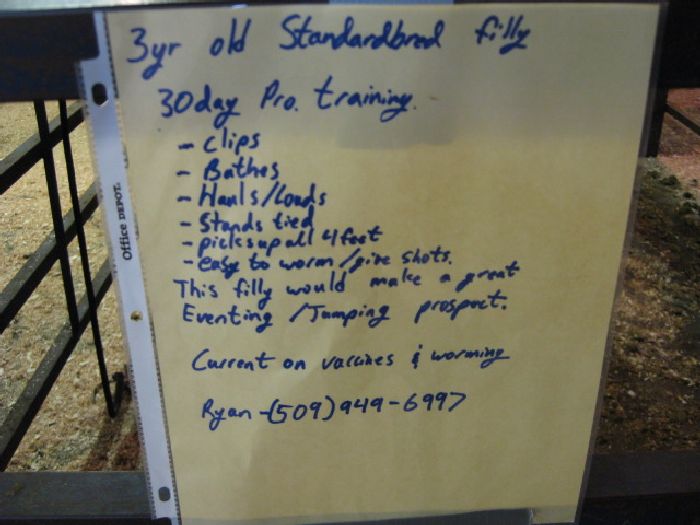 3yr old Standardbred filly
30day Pro. training.
- Clips
- Bathes
- Hauls/Loads
- Stands tied
- picks up all 4 feet
- easy to worm/give shots.
This filly would make a great
Eventing /Jumping prospect.
Current on vaccines & worming
Ryan -(509)949-6997
Office DEPOT.